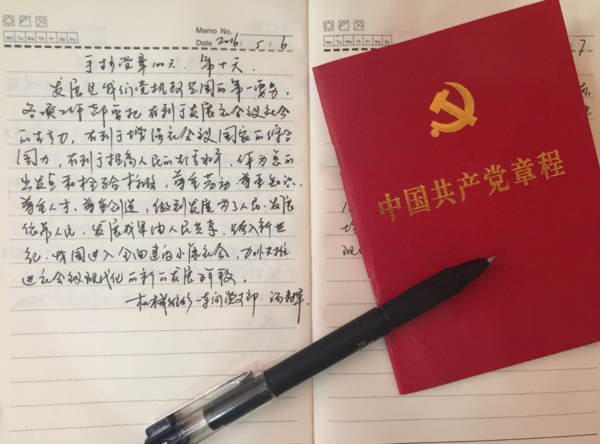 Memo No.
Mo Tu We Th Fr Sa Su
Date 2016. 5. 6
手抄党章100天. 第十天.
发展是我们党执政兴国的第一要务.
各项工作都要把有利于发展社会主义社会
的生产力,有利于增强社会主义国家的综合
国力,有利于提高人民的生活水平,作为总的
出发点和检验标准,尊重劳动、尊重知识、
尊重人才、尊重创造,做到发展为了人民、发展
依靠人民、发展成果由人民共享.跨入新世
纪,我国进入全面建设小康社会、加快推
进社会主义现代化的新的发展阶段.
一车间党支部
Mo Tu We Th Fr Sa Su
7
中国共产党章程